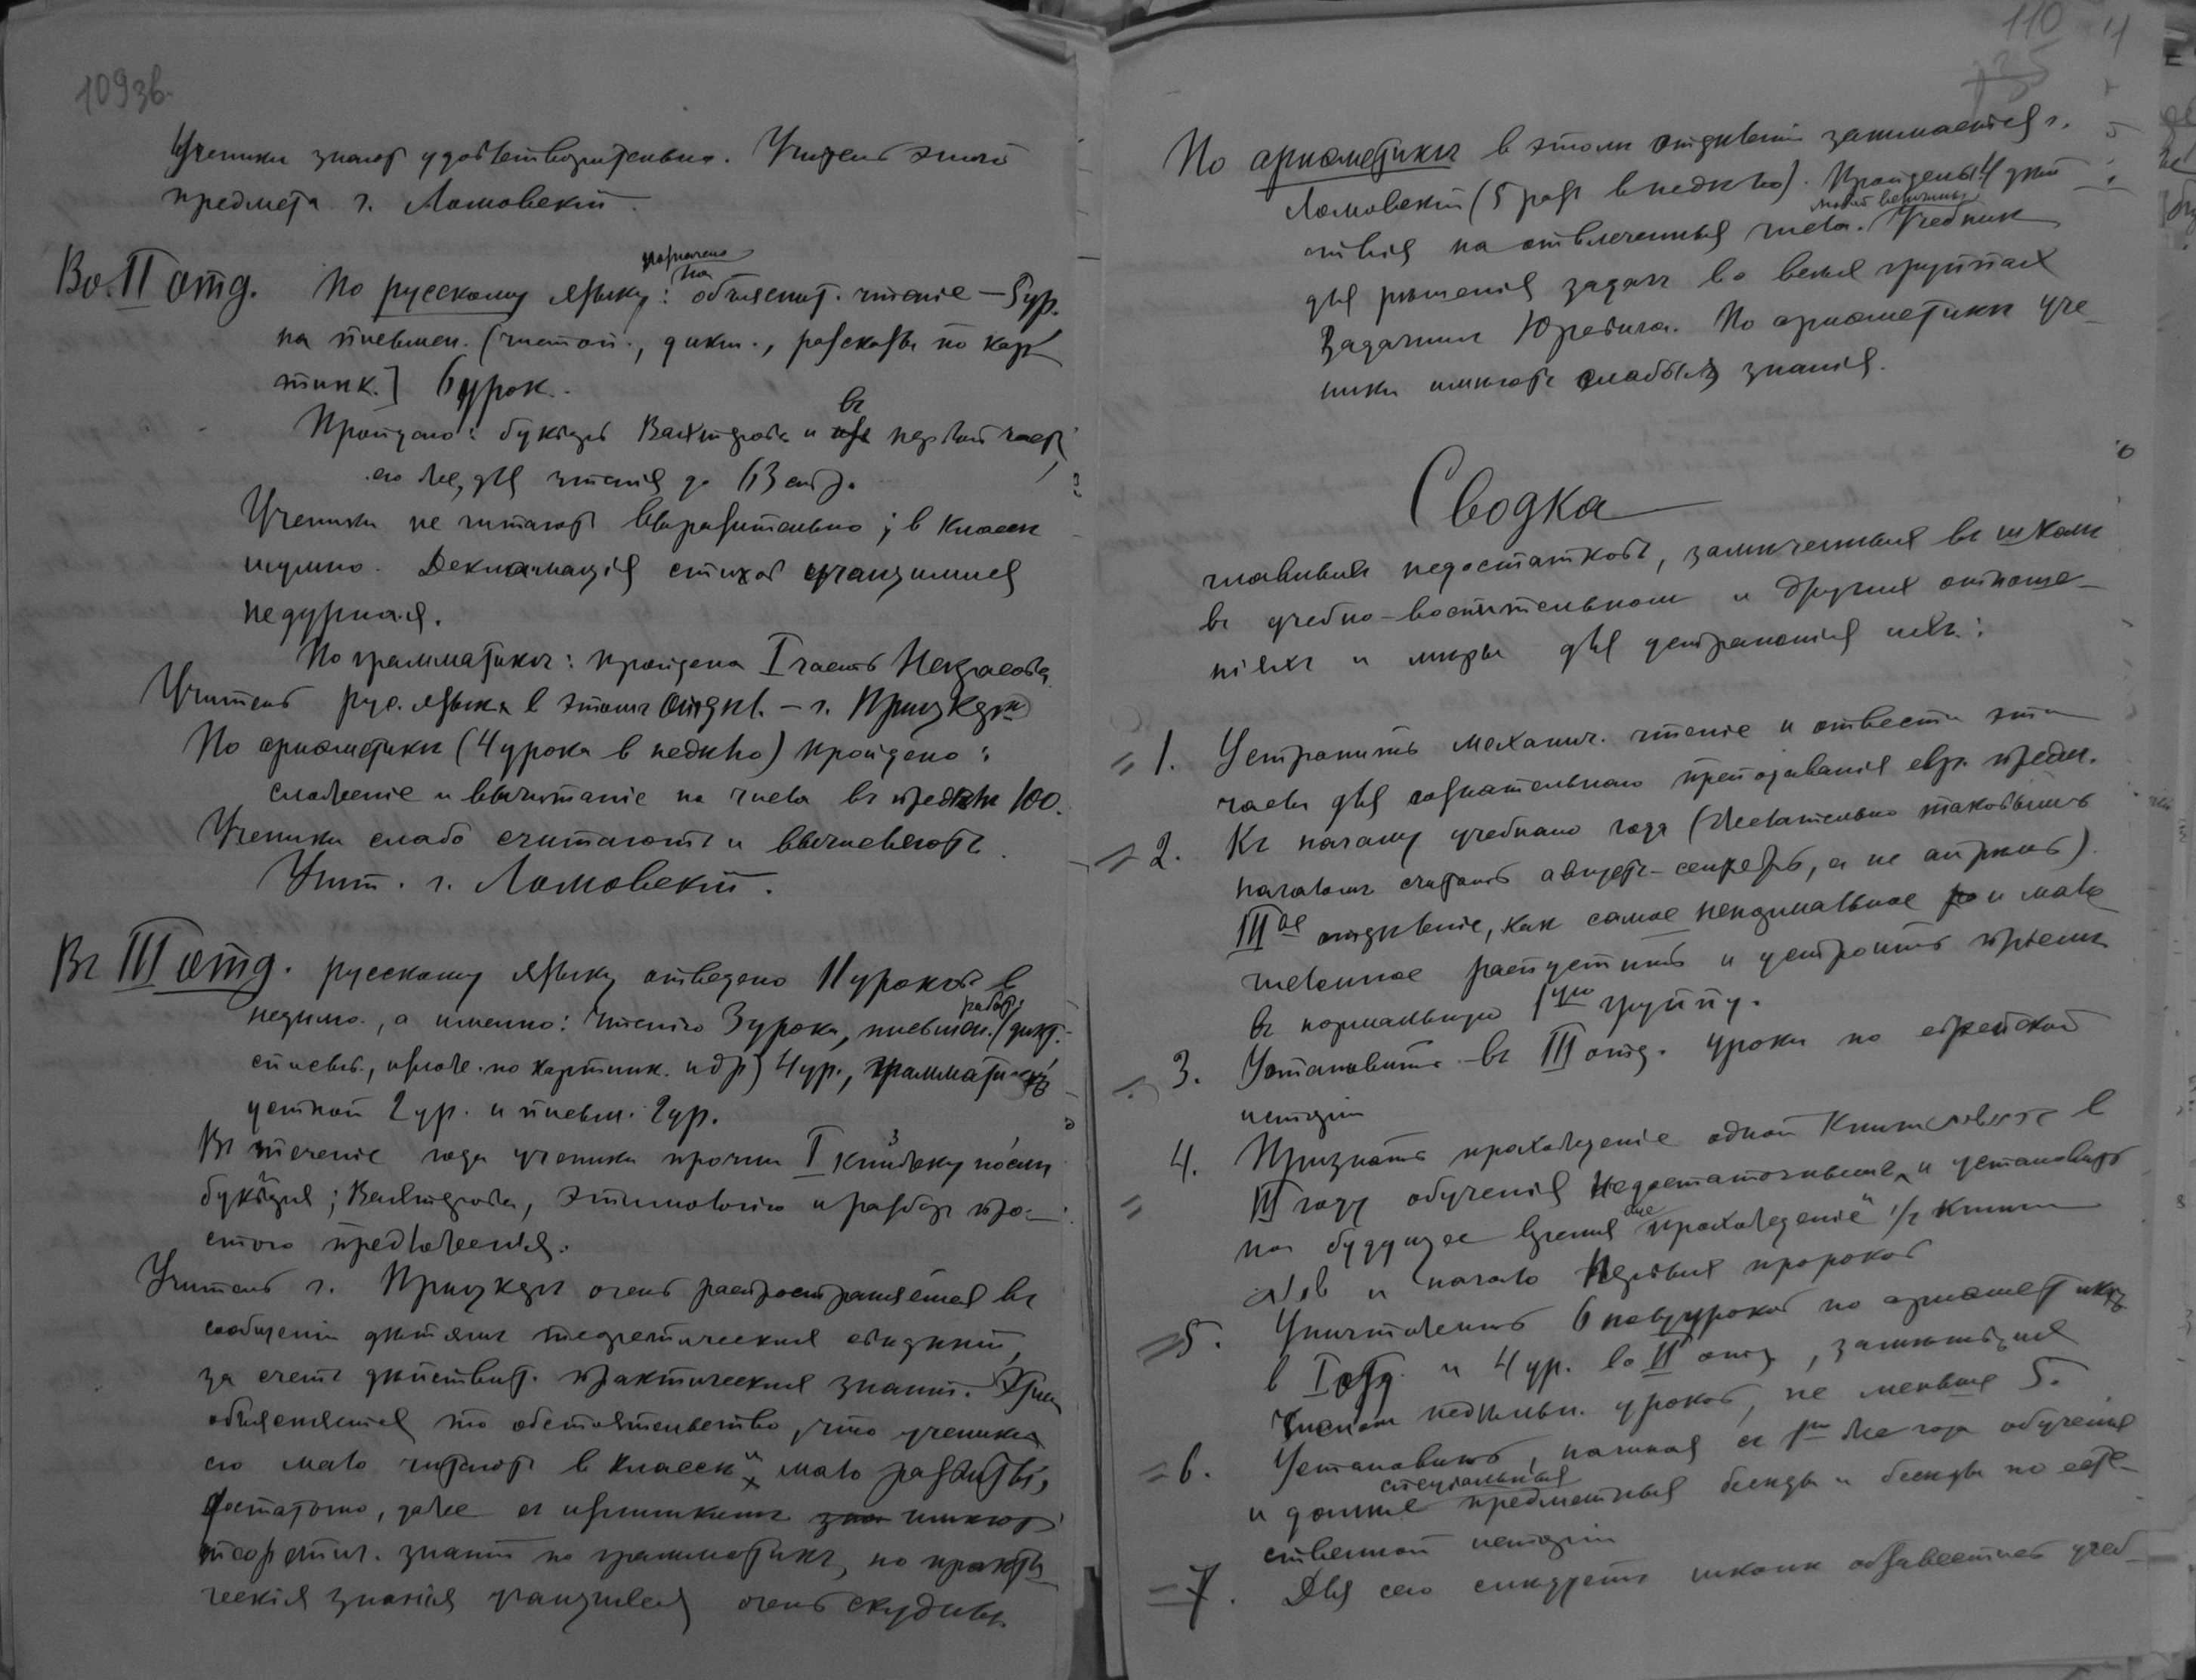 109зв.
Ученики знают удовлетворительно. Учитель этого
предмета г. Ломовский.
Во II отд. По русскому языку: назначено на объяснит. чтение — 5 ур.
на письмен. (чистоп., дикт., рассказы по кар-
тинк.) 6 урок.
Пройдено: букварь Вахтерова и въ первой част.
его же, для чтения до 63 стр.
Ученики не читают выразительно; в классе
шумно. Декламацiя стихов учащимися
недурная.
По грамматике: пройдена I часть Некрасова
Учитель рус. языка в этом отдел. — г.
По ариѳметике (4 урока в неделю) пройдено:
сложенiе и вычитанiе на числа въ пределе 100.
Ученики слабо считаютъ и вычисляютъ.
Учит. г. Ломовскiй.
Въ III отд. русскому языку отведено 11 уроковъ в
неделю, а именно: чтенiю 3 урока, письмен. работ. (дикт.
списыв., излож. по картинк. и др.) 4 ур., грамматикѣ
устной 2 ур. и письм. 2 ур.
Въ теченiе года ученики прочли I книжку послѣ
букваря; Вахтерова, этимологiю и разбор про-
стого предложенiя.
Учитель г. очень распространяется въ
сообщенiи дѣтямъ теоретическихъ свѣдѣнiй,
за счетъ дѣйствит. практическихъ знанiй. Этим
объясняется то обстоятельство, что ученики
его мало читаютъ в классѣ и мало развиты,
достаточно, даже съ излишкомъ имѣют
теоретич. знанiй по грамматикѣ, но практи-
ческiя знанiя учащихся очень скудны
110
135
По ариѳметикѣ в этом отдѣленiи занимается г.
Ломовскiй (5 разъ в недѣлю). Пройдены 4 дѣй-
ствiя на отвлеченныя числа любой величины. Учебник
для рѣшенiя задачъ во всѣхъ группахъ
Задачник Юревича. По ариѳметикѣ уче-
ники имѣютъ слабыя знанiя.
Сводка
главныхъ недостатковъ, замѣченныхъ въ школѣ
въ учебно-воспитательномъ и другихъ отноше-
нiяхъ и мѣры для устраненiя ихъ:
1. Устранить механич. чтенiе и отвести эти
часы для сознательнаго преподаванiя евр. предм.
2. Къ началу учебнаго года (желательно таковымъ
началомъ считать августъ-сентябрь, а не апрѣль)
III ое отдѣленiе, как самое ненормальное и мало
численное распустить и устроить прiемъ
въ нормальную 1 ую группу.
3. Установить въ III отд. уроки по еврейской
исторiи
4. Признать прохожденiе одной книги в
III году обученiя недостаточнымъ, и установить
на будущее время еще прохожденiе 1/2 книги
и начало первыхъ пророковъ
5. Уничтожить 6 полууроков по ариѳметикѣ
в I отд. и 4 ур. во II отд.,
числом недѣльн. уроков, не меньше 5.
6. Установить, начиная съ 1 го же года обученiя
и далѣе спецiальныя предметныя бесѣды и бесѣды по есте-
ственной исторiи
7. Для сего слѣдуетъ школѣ обзавестись учеб-